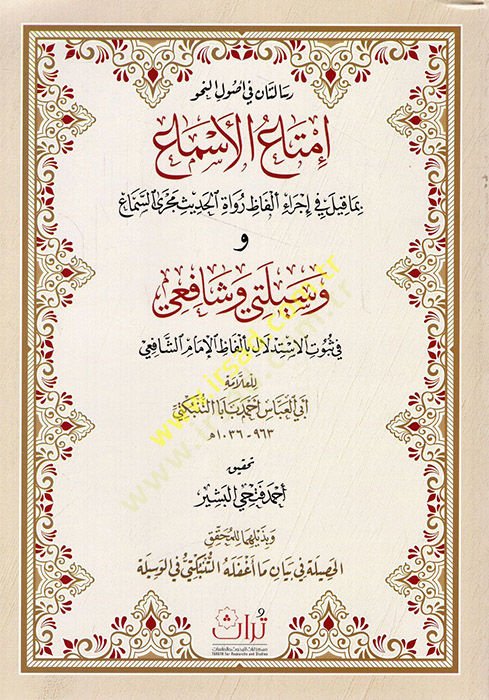 رسالتان في أصول النحو
إمتاع الأسماع
بما قيل في إجراء ألفاظ رواة الحديث مجرى السماع
و
وسيلتي وشافعي
في ثبوت الاستدلال بألفاظ الإمام الشافعي
للعلامة
أبي العباس أحمد بابا التنبكتي
٩٦٣ - ١٠٣٦هـ
تحقيق
أحمد فتحي البشير
وبذيلها للمحقق
الحصيلة في بيان ما أغفله التنبكتي في الوسيلة
تراث
TURATH for Researchs and Studies
www.irsad.com.tr